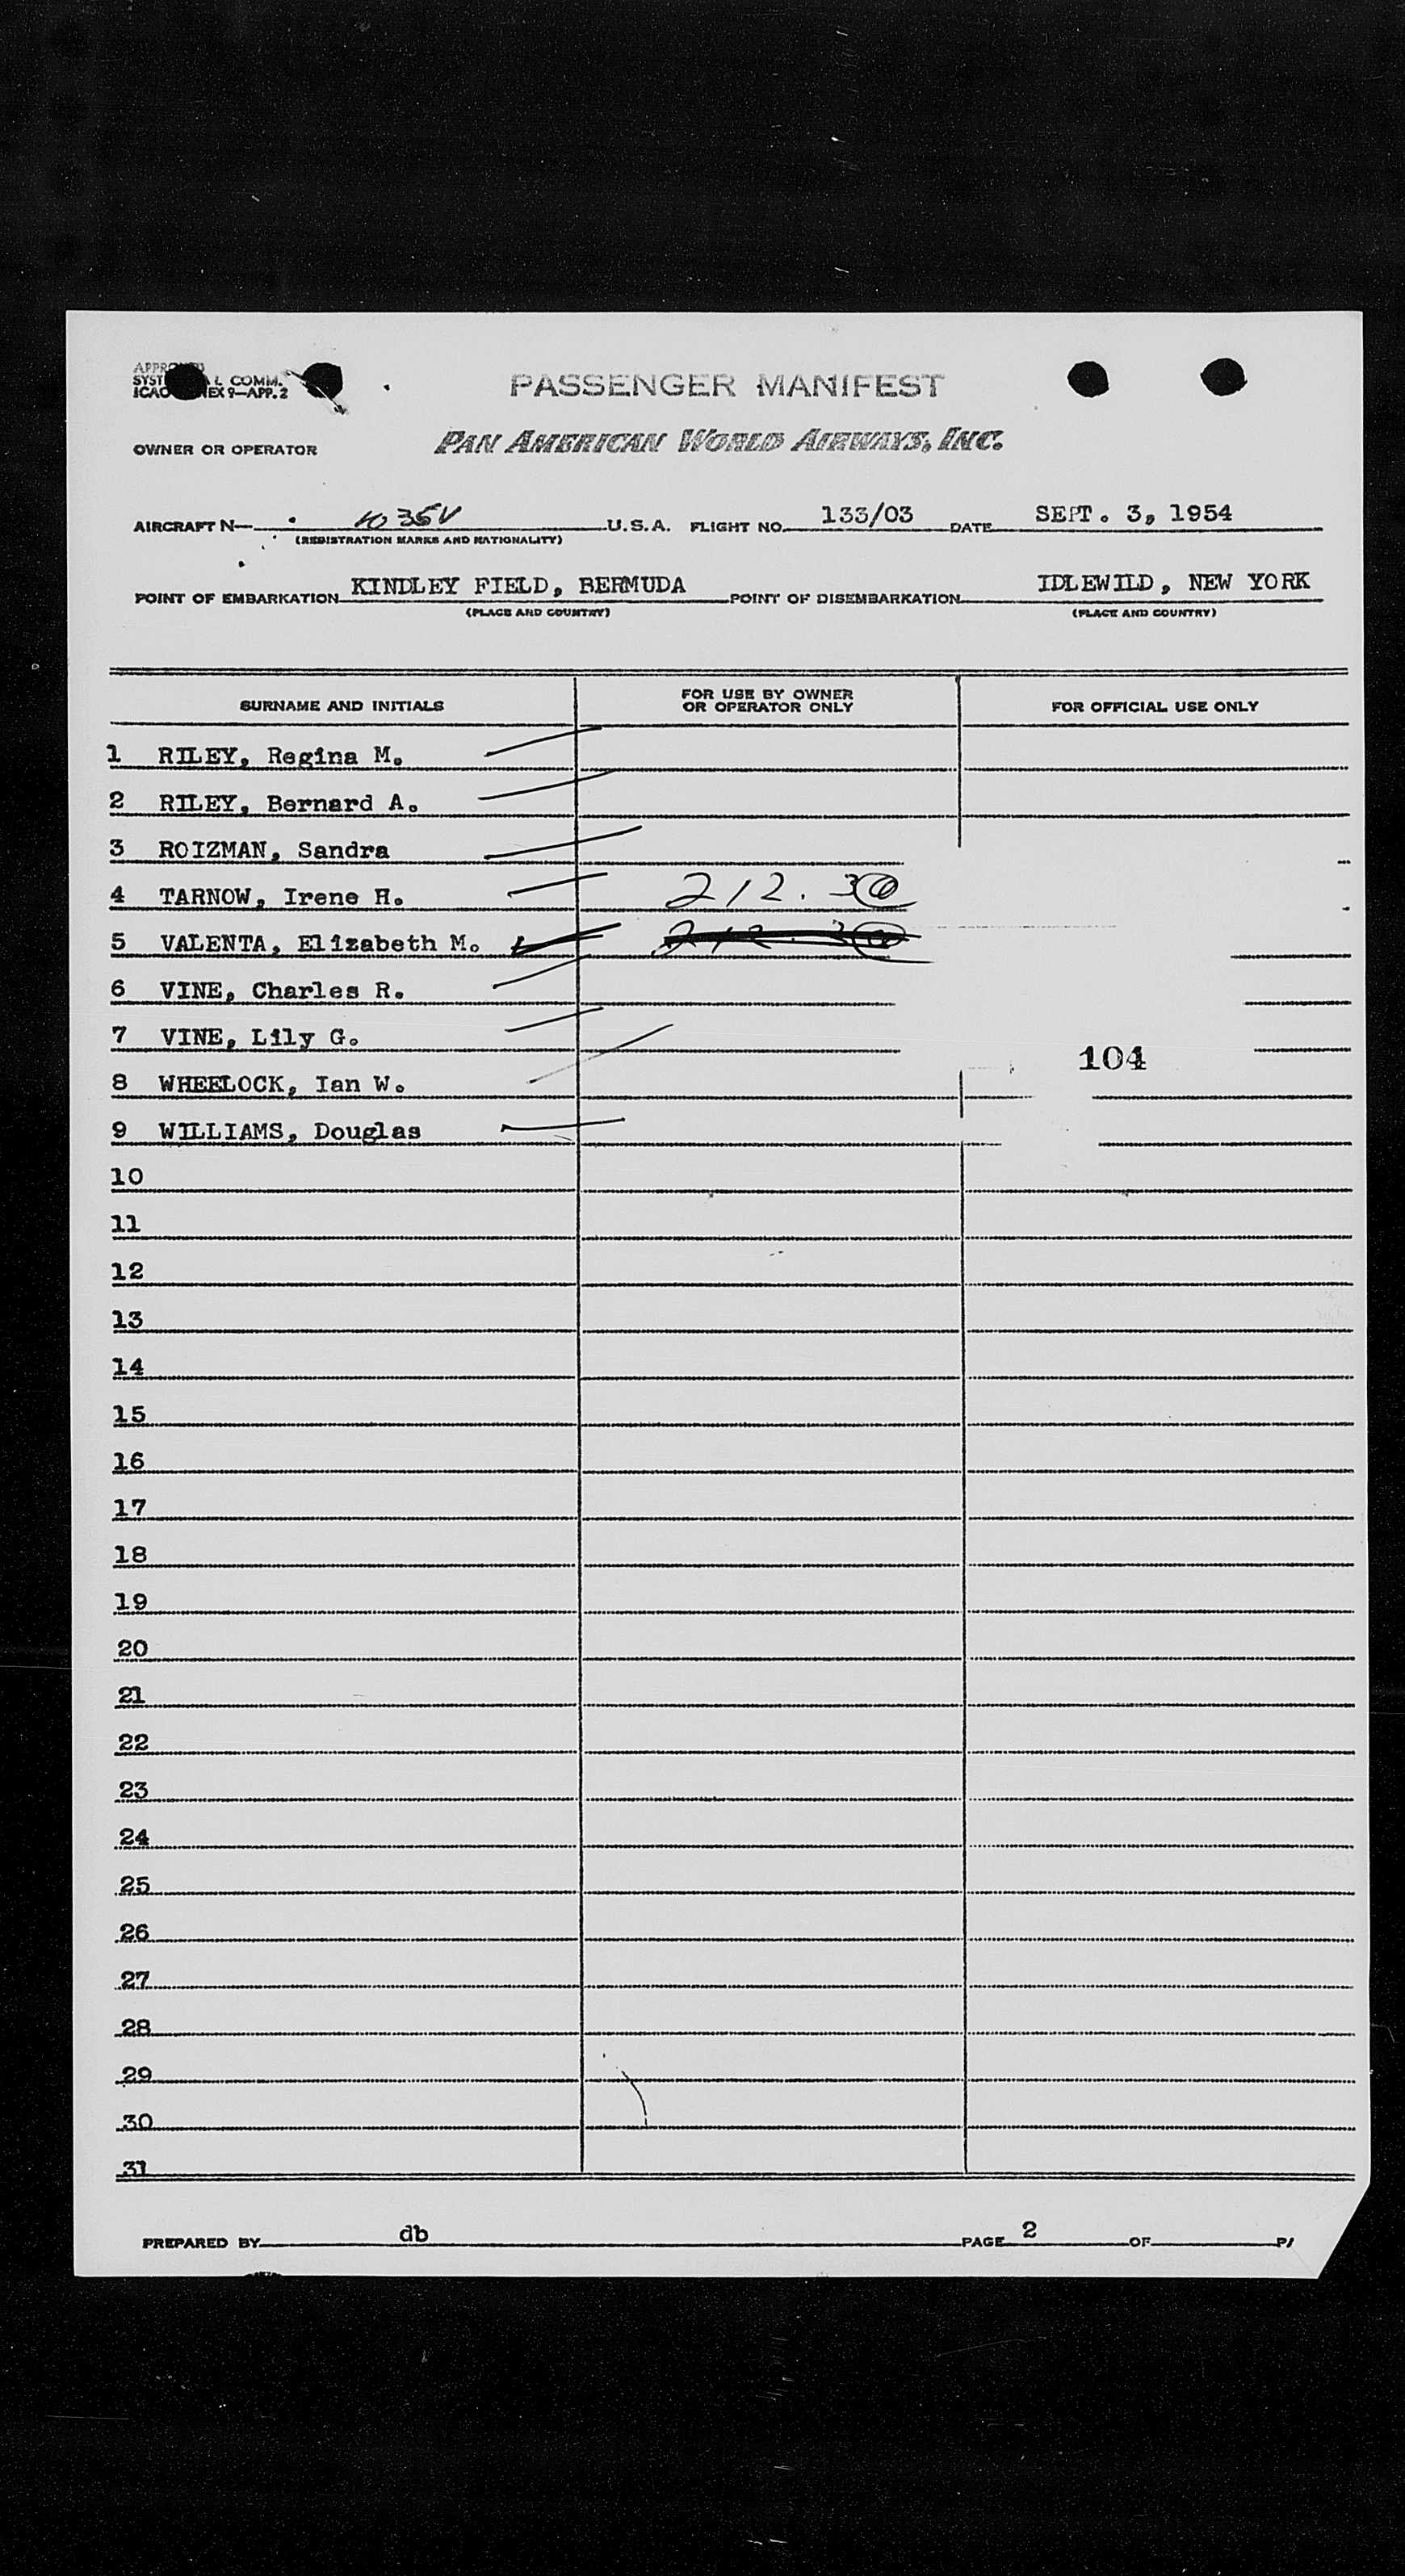 SYST L COMM.
ICAO EX 9—APP. 2
PASSENGER MANIFEST
OWNER OR OPERATOR PAN AMERICAN WORLD AIRWAYS, INC.
AIRCRAFT N— 1035V U.S.A. FLIGHT NO. 133/03 DATE SEPT. 3, 1954
(REGISTRATION MARKS AND NATIONALITY)
POINT OF EMBARKATION KINDLEY FIELD, BERMUDA POINT OF DISEMBARKATION IDLEWILD, NEW YORK
(PLACE AND COUNTRY) (PLACE AND COUNTRY)
SURNAME AND INITIALS FOR USE BY OWNER OR OPERATOR ONLY FOR OFFICIAL USE ONLY
1 RILEY, Regina M.
2 RILEY, Bernard A.
3 ROIZMAN, Sandra
4 TARNOW, Irene H. 212.3
5 VALENTA, Elizabeth M.
6 VINE, Charles R.
7 VINE, Lily G.
104
8 WHEELOCK, Ian W.
9 WILLIAMS, Douglas
10
11
12
13
14
15
16
17
18
19
20
21
22
23
24
25
26
27
28
29
30
31
PREPARED BY db PAGE 2 OF